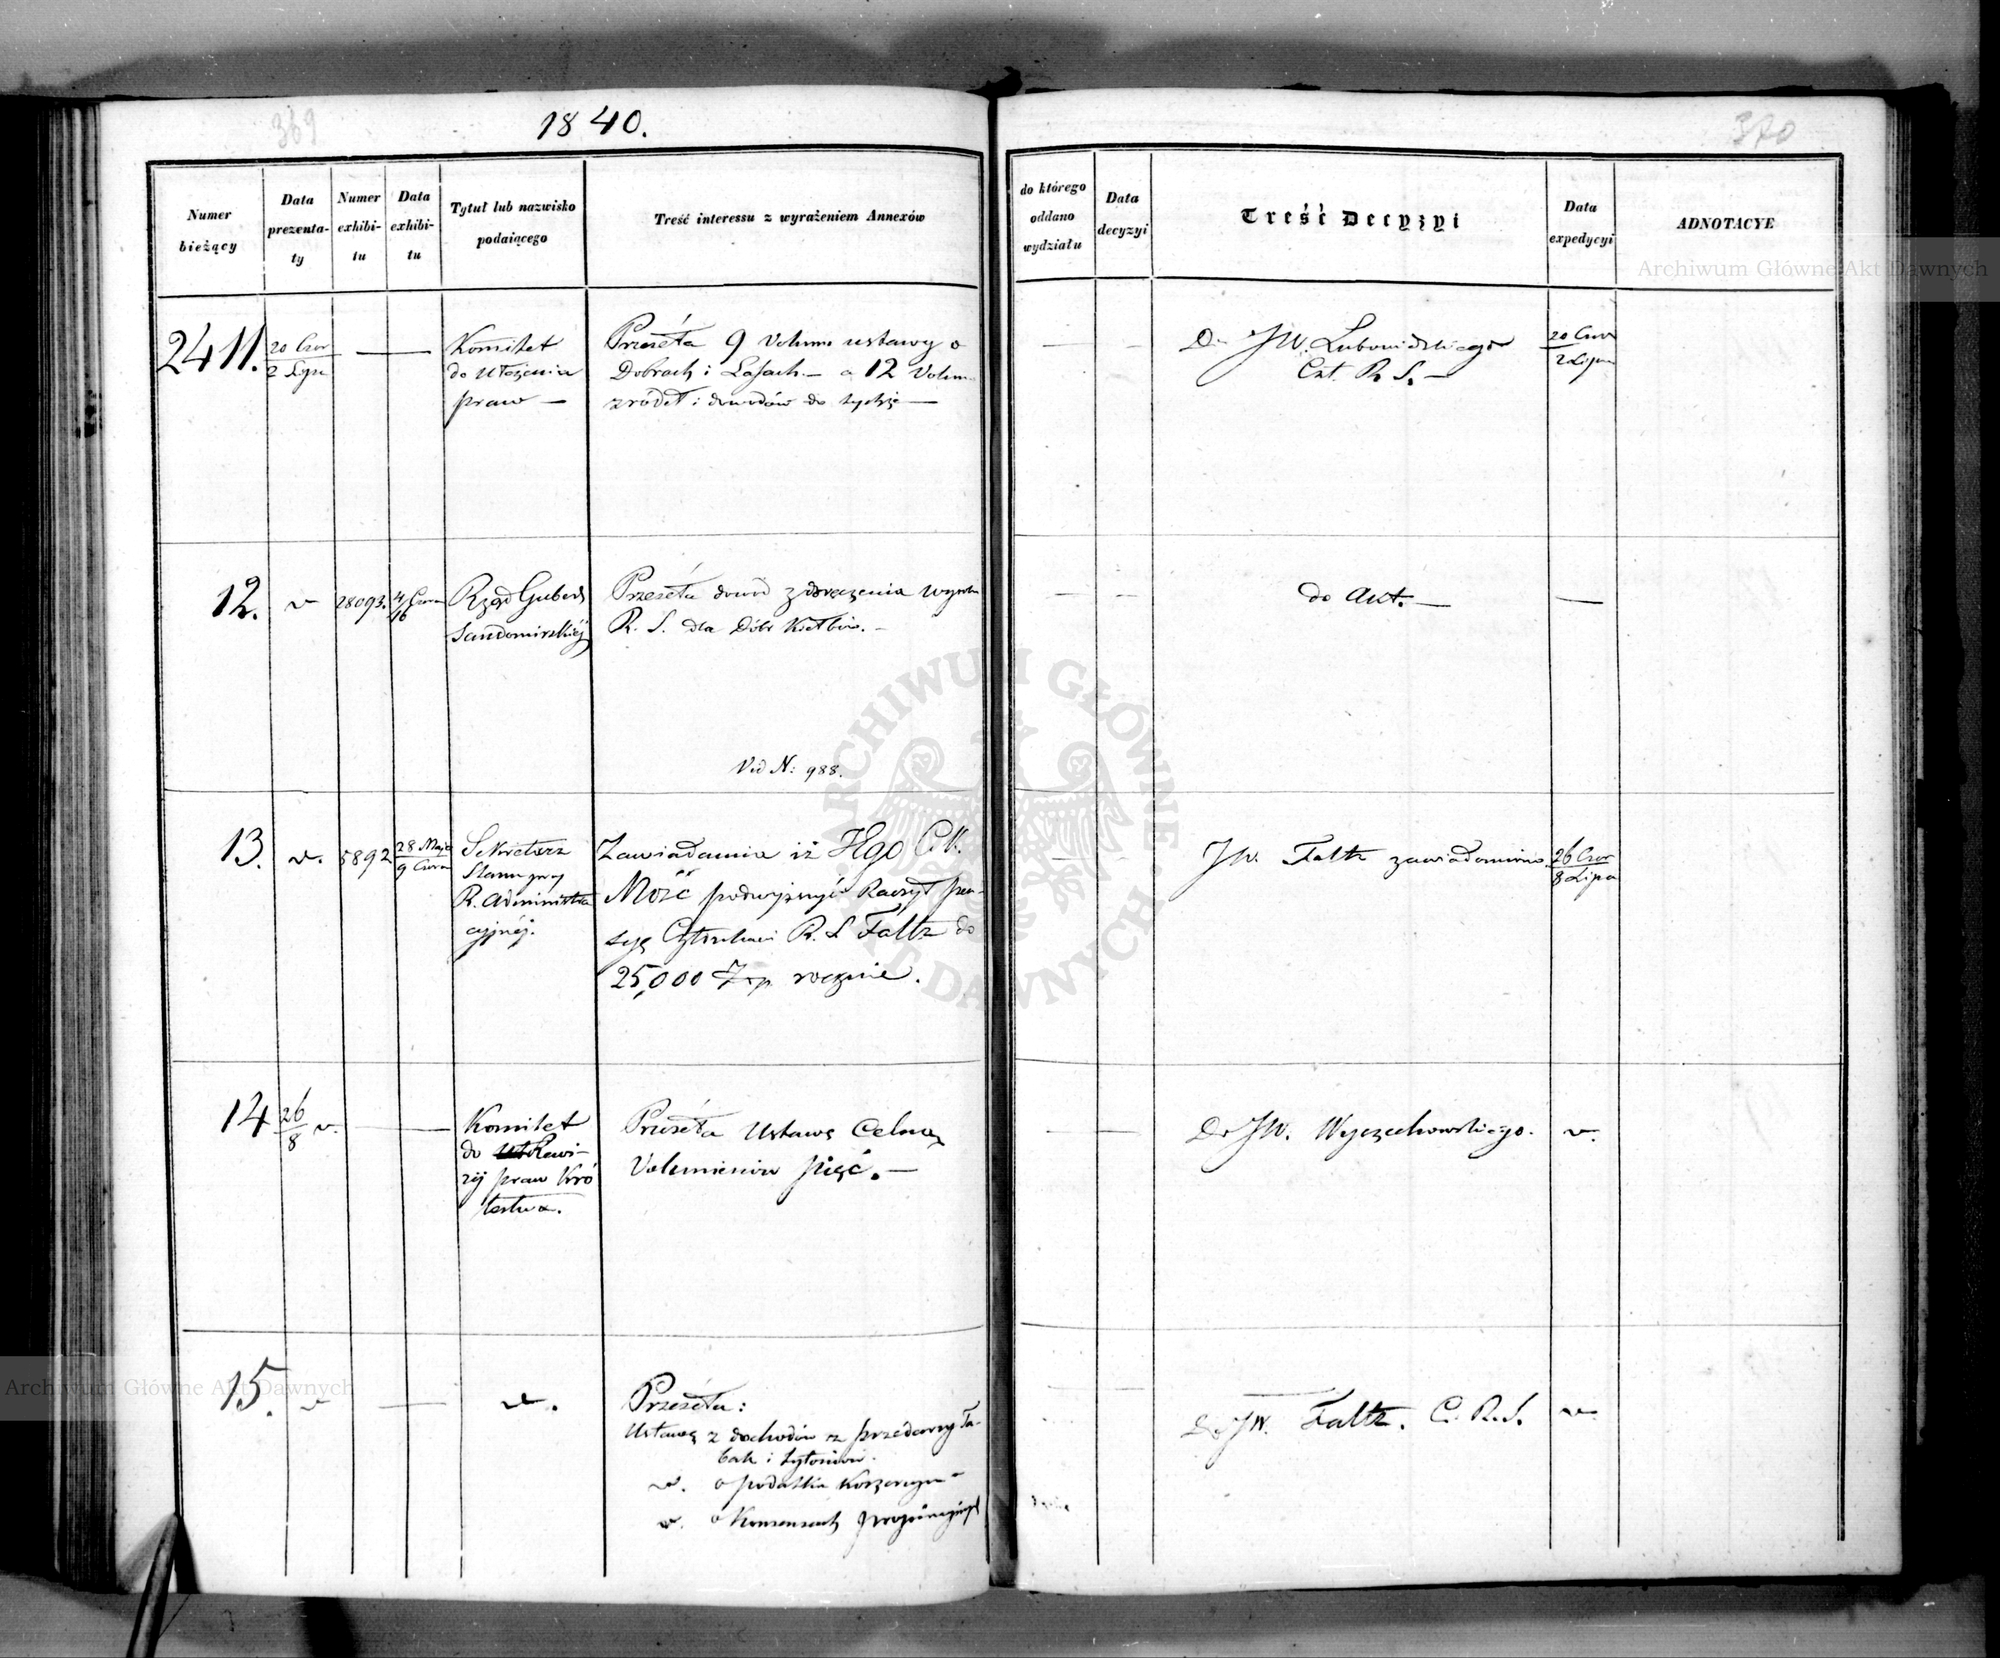 369
1840.
370
Numer bieżący
Data prezenta-ty
Numer exhibi-tu
Data exhibi-tu
Tytuł lub nazwisko podaiącego
Treść interessu z wyrażeniem Annexów
do którego oddano wydziału
Data decyzyi
Treść Decyzyi
Data expedycyi
ADNOTACYE
2411.
20 Czer
2 Lipc
Komitet
do Ułożenia
praw —
Przeséła 9 Volum ustawy o
Dobrach i Lasach — a 12 Volum
zródeł i dowodów do tychże —
Do JW. Lubowidzkiego
Czł. R. S. —
20 Czer
2 Lipca
12.
v
28093.
4/16 Czerw
Rząd Gubern
Sandomirskiéj
Przeséła dowód z doręczenia wyroku
R. S. dla Dóbr
do Akt. —
Vid N: 988.
13.
v.
5892
28 Maja
9 Czerw
Sekretarz
Stanu przy
R. Administra
cyjnéj.
Zawiadamia iż JEgo C. K.
Mość podwyższyć Raczył pen-
syę Członkowi R. S. Faltz do
25,000 Złp rocznie.
JW. Faltz zawiadomiono.
26 Czer
8 Lipca
14
26
8 v.
Komitet
do Rewi-
zyj praw Kró
lestwa.
Przeséła Ustawę Celną
Voluminów pięć. —
Do JW. Wyczechowskiego.
v.
15.
v
v.
Przeséła:
Ustawę z dochodów z przedarzy Ta-
bak i tytoniów.
v. o podatku Konsumcyi
v. o Konsensach propinacyjnych
Do JW. Faltz. C. R. S.
v.
ARCHIWUM GŁÓWNE AKT DAWNYCH
Archiwum Główne Akt Dawnych
Archiwum Główne Akt Dawnych